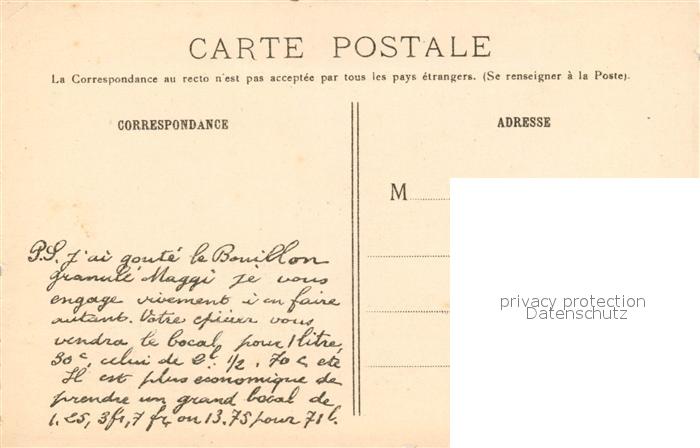 CARTE POSTALE
La Correspondance au recto n'est pas acceptée par tous les pays étrangers. (Se renseigner à la Poste).
CORRESPONDANCE
ADRESSE
M
P.S. J'ai gouté le Bouillon
granulé Maggi je vous
engage vivement à en faire
autant. Votre épicier vous
vendra le bocal pour 1 litre,
30 c, celui de 2 l. 1/2, 70 c, etc
Il est plus economique de
prendre un grand bocal de
1.25, 3 fr, 7 fr, ou 13.75 pour 71 l.
privacy protection
Datenschutz